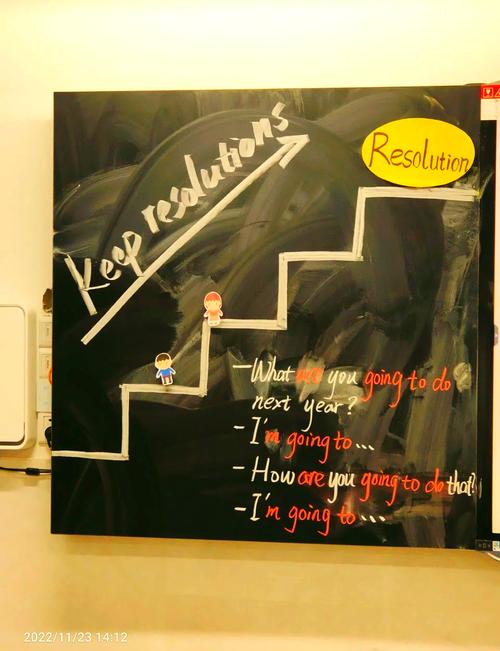 Keep resolutions
Resolution
-What are you going to do
next year?
-I'm going to...
-How are you going to do that?
-I'm going to...
2022/11/23 14:12